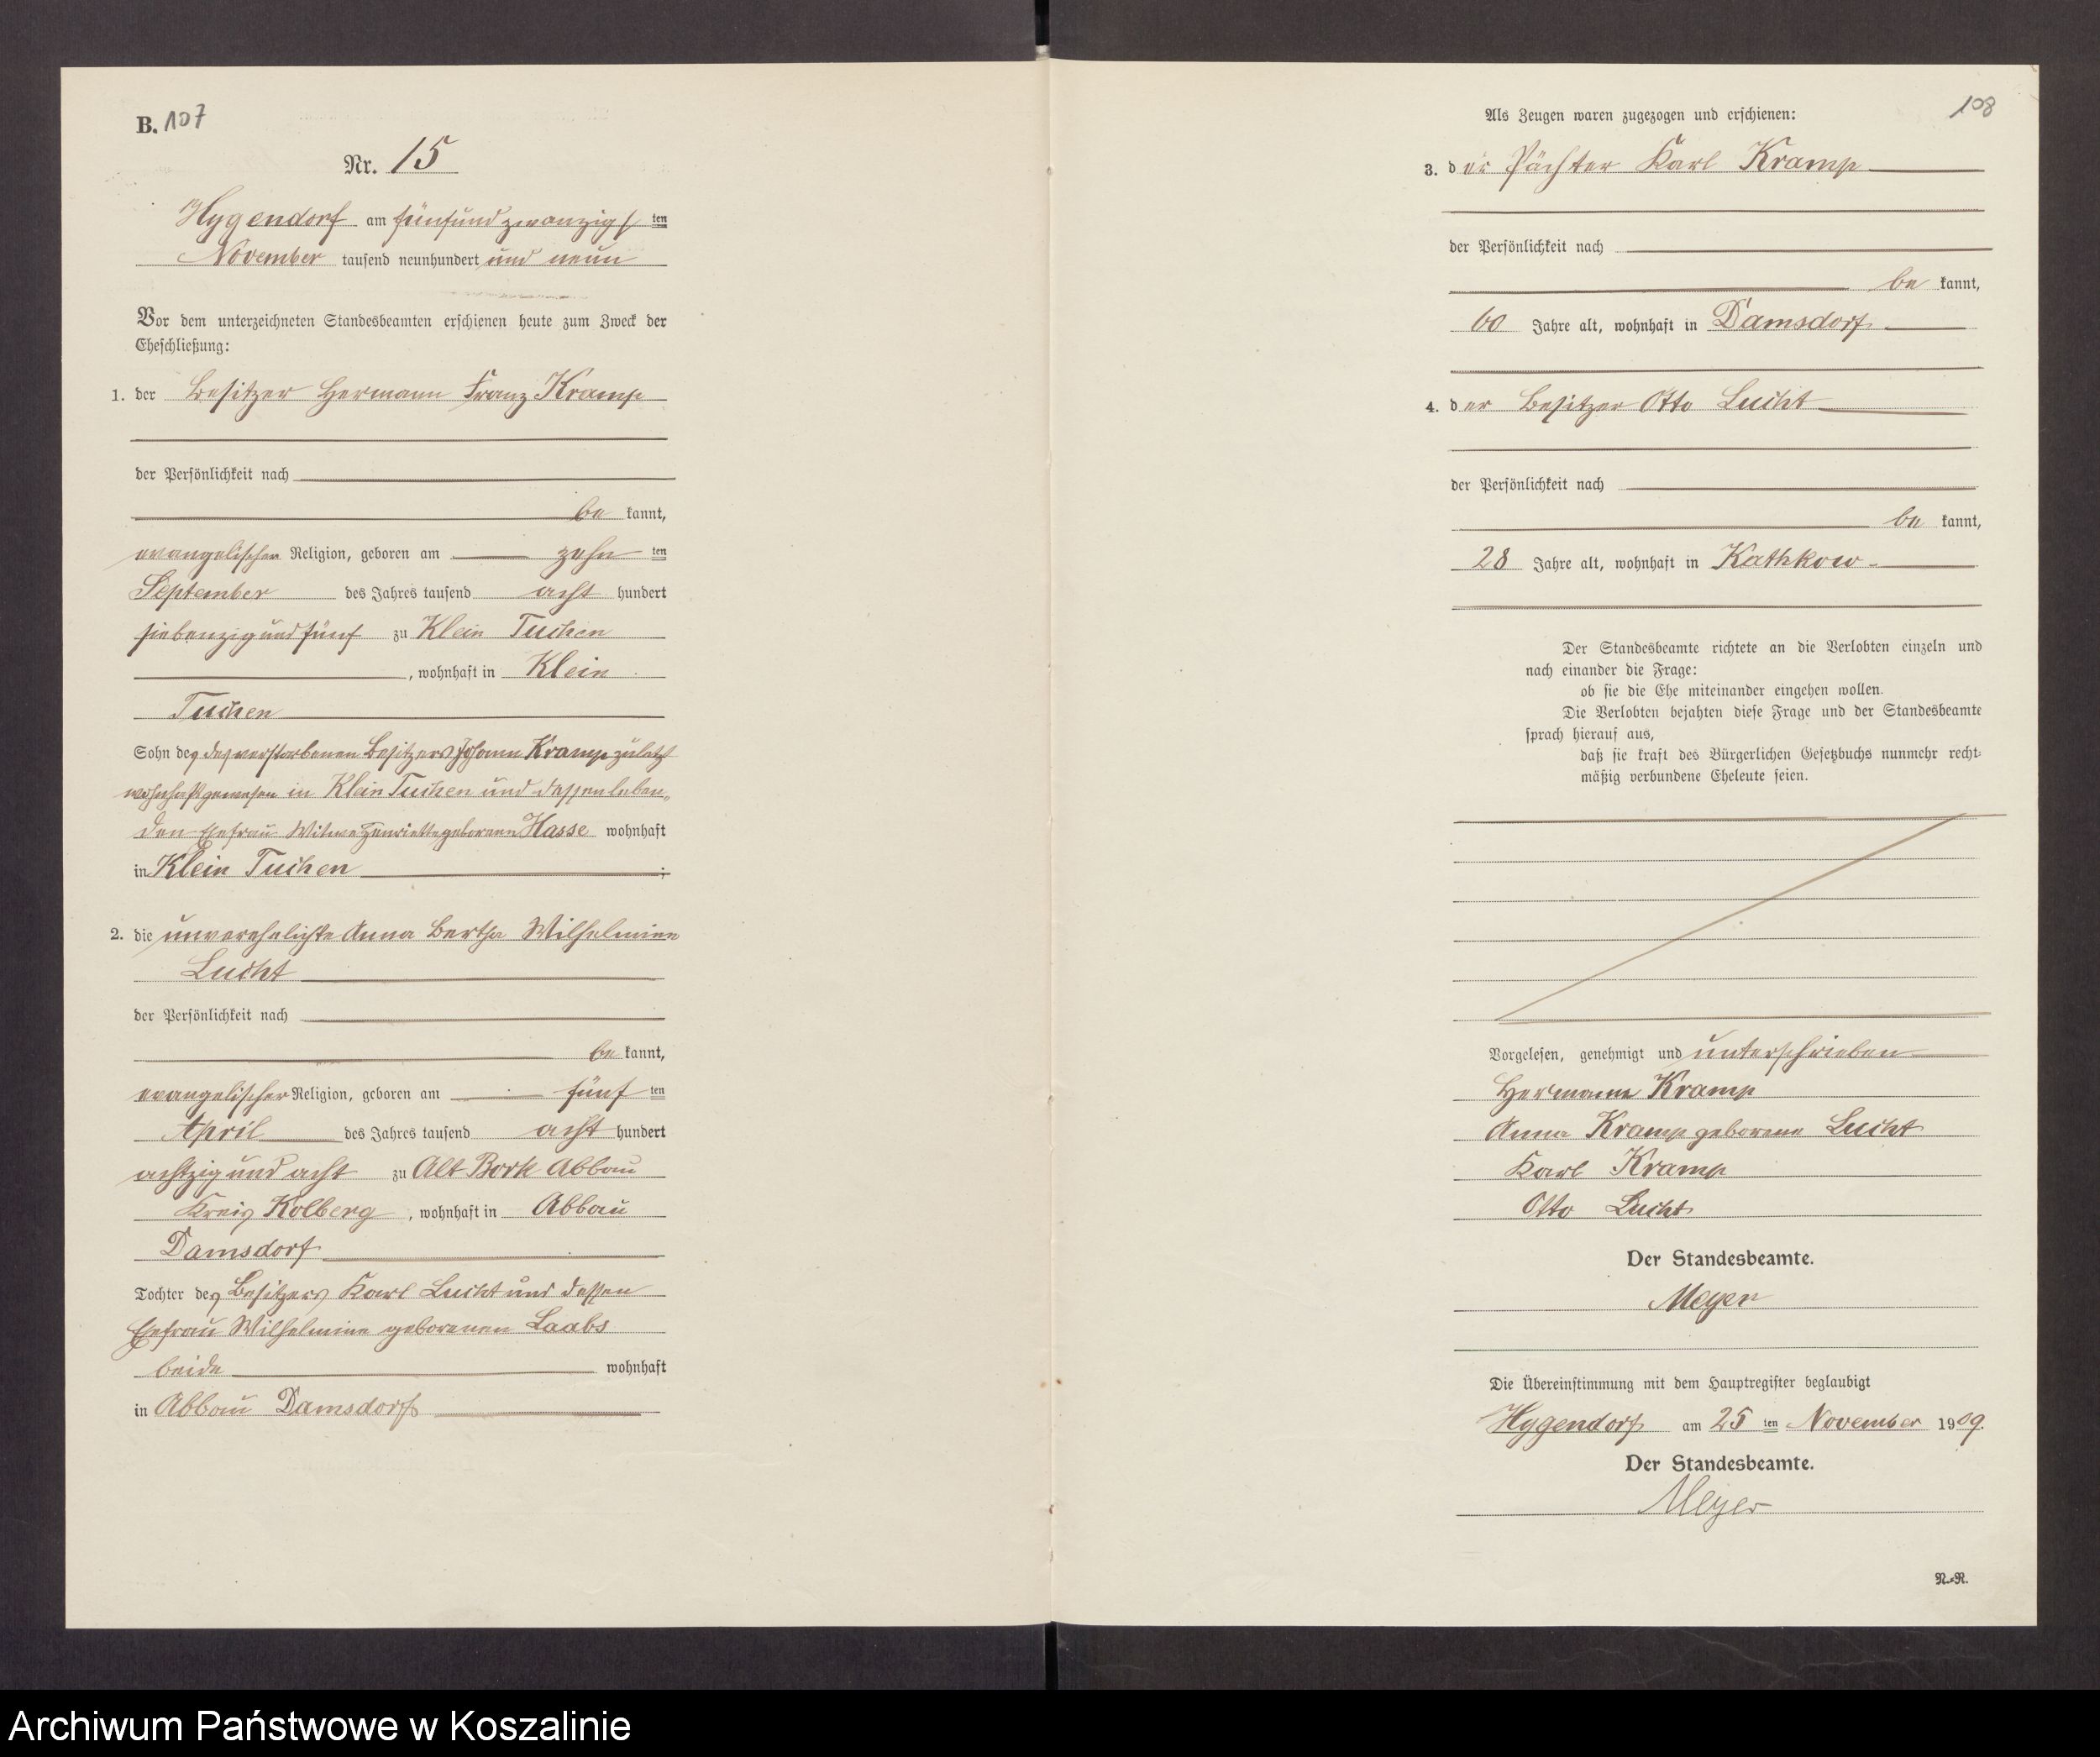 B. 107
Nr. 15
Hygendorf am fünfundzwanzigsten
November tausend neunhundert und neun
Vor dem unterzeichneten Standesbeamten erschienen heute zum Zweck der
Eheschließung:
1. der Besitzer Hermann Franz Kramp
der Persönlichkeit nach
be kannt,
evangelischer Religion, geboren am zehn ten
September des Jahres tausend acht hundert
siebenzig und fünf zu Klein Tuchen
, wohnhaft in Klein
Tuchen
Sohn des des verstorbenen Besitzers Johann Kramp zuletzt
wohnhaft gewesen in Klein Tuchen und dessen leben-
den Ehefrau Witwe Henriette geborenen Hasse wohnhaft
in Klein Tuchen ;
2. die unverehelichte Anna Bertha Wilhelmine
Lucht
der Persönlichkeit nach
be kannt,
evangelischer Religion, geboren am fünf ten
April des Jahres tausend acht hundert
achtzig und acht zu Alt Bork Abbau
Kreis Kolberg , wohnhaft in Abbau
Damsdorf
Tochter des Besitzers Karl Lucht und dessen
Ehefrau Wilhelmine geborenen Laabs
beide wohnhaft
in Abbau Damsdorf
108
Als Zeugen waren zugezogen und erschienen:
3. der Pächter Karl Kramp
der Persönlichkeit nach
be kannt,
60 Jahre alt, wohnhaft in Damsdorf
4. der Besitzer Otto Lucht
der Persönlichkeit nach
be kannt,
28 Jahre alt, wohnhaft in Kathkow
Der Standesbeamte richtete an die Verlobten einzeln und
nach einander die Frage:
ob sie die Ehe miteinander eingehen wollen.
Die Verlobten bejahten diese Frage und der Standesbeamte
sprach hierauf aus,
daß sie kraft des Bürgerlichen Gesetzbuchs nunmehr recht-
mäßig verbundene Eheleute seien.
Vorgelesen, genehmigt und unterschrieben
Hermann Kramp
Anna Kramp geborene Lucht
Karl Kramp
Otto Lucht
Der Standesbeamte.
Meyer
Die Übereinstimmung mit dem Hauptregister beglaubigt
Hygendorf am 25 ten November 1909.
Der Standesbeamte.
Meyer
N.-R.
Archiwum Państwowe w Koszalinie